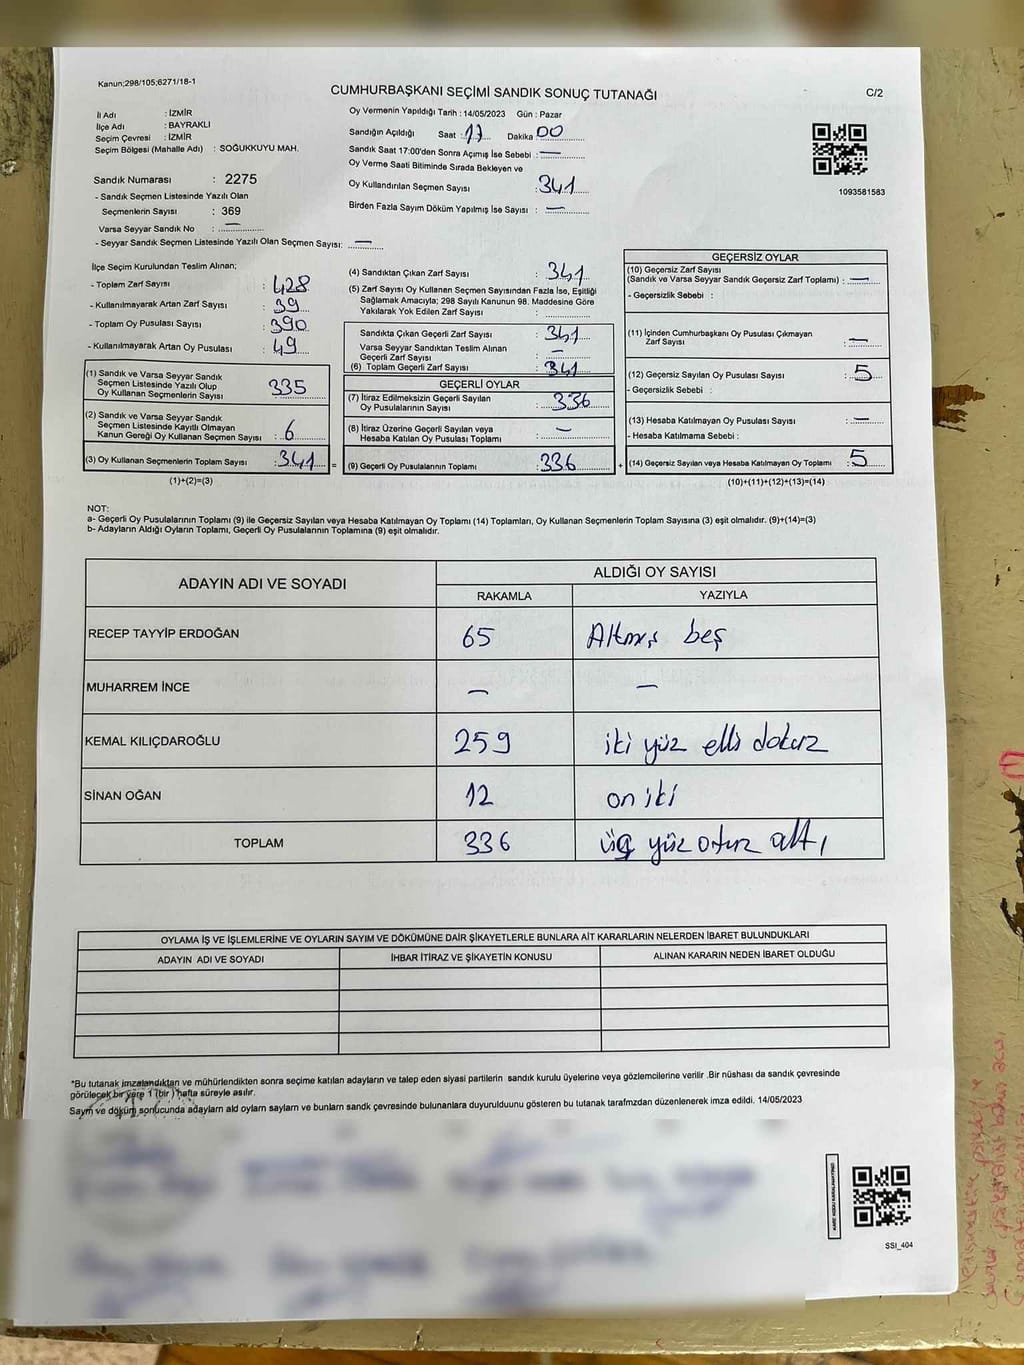 Kanun;298/105;6271/18-1
CUMHURBAŞKANI SEÇİMİ SANDIK SONUÇ TUTANAĞI
C/2
İl Adı : İZMİR
İlçe Adı : BAYRAKLI
Seçim Çevresi : İZMİR
Seçim Bölgesi (Mahalle Adı) : SOĞUKKUYU MAH.
Sandık Numarası : 2275
- Sandık Seçmen Listesinde Yazılı Olan
Seçmenlerin Sayısı : 369
Varsa Seyyar Sandık No : —
- Seyyar Sandık Seçmen Listesinde Yazılı Olan Seçmen Sayısı: —
Oy Vermenin Yapıldığı Tarih : 14/05/2023 Gün : Pazar
Sandığın Açıldığı Saat : 17 Dakika 00
Sandık Saat 17:00'den Sonra Açımış İse Sebebi : —
Oy Verme Saati Bitiminde Sırada Bekleyen ve
Oy Kullandırılan Seçmen Sayısı : 341
Birden Fazla Sayım Döküm Yapılmış İse Sayısı : —
1093581583
İlçe Seçim Kurulundan Teslim Alınan;
- Toplam Zarf Sayısı : 428
- Kullanılmayarak Artan Zarf Sayısı : 39
- Toplam Oy Pusulası Sayısı : 390
- Kullanılmayarak Artan Oy Pusulası : 49
(1) Sandık ve Varsa Seyyar Sandık
Seçmen Listesinde Yazılı Olup
Oy Kullanan Seçmenlerin Sayısı 335
(2) Sandık ve Varsa Seyyar Sandık
Seçmen Listesinde Kayıtlı Olmayan
Kanun Gereği Oy Kullanan Seçmen Sayısı : 6
(3) Oy Kullanan Seçmenlerin Toplam Sayısı : 341
(1)+(2)=(3)
=
(4) Sandıktan Çıkan Zarf Sayısı : 341
(5) Zarf Sayısı Oy Kullanan Seçmen Sayısından Fazla İse, Eşitliği
Sağlamak Amacıyla; 298 Sayılı Kanunun 98. Maddesine Göre
Yakılarak Yok Edilen Zarf Sayısı :
Sandıkta Çıkan Geçerli Zarf Sayısı : 341
Varsa Seyyar Sandıktan Teslim Alınan
Geçerli Zarf Sayısı : —
(6) Toplam Geçerli Zarf Sayısı : 341
GEÇERLİ OYLAR
(7) İtiraz Edilmeksizin Geçerli Sayılan
Oy Pusulalarının Sayısı : 336
(8) İtiraz Üzerine Geçerli Sayılan veya
Hesaba Katılan Oy Pusulası Toplamı : —
(9) Geçerli Oy Pusulalarının Toplamı : 336
+
GEÇERSİZ OYLAR
(10) Geçersiz Zarf Sayısı
(Sandık ve Varsa Seyyar Sandık Geçersiz Zarf Toplamı) : —
- Geçersizlik Sebebi :
(11) İçinden Cumhurbaşkanı Oy Pusulası Çıkmayan
Zarf Sayısı : —
(12) Geçersiz Sayılan Oy Pusulası Sayısı : 5
- Geçersizlik Sebebi :
(13) Hesaba Katılmayan Oy Pusulası : —
- Hesaba Katılmama Sebebi :
(14) Geçersiz Sayılan veya Hesaba Katılmayan Oy Toplamı : 5
(10)+(11)+(12)+(13)=(14)
NOT:
a- Geçerli Oy Pusulalarının Toplamı (9) ile Geçersiz Sayılan veya Hesaba Katılmayan Oy Toplamı (14) Toplamları, Oy Kullanan Seçmenlerin Toplam Sayısına (3) eşit olmalıdır. (9)+(14)=(3)
b- Adayların Aldığı Oyların Toplamı, Geçerli Oy Pusulalarının Toplamına (9) eşit olmalıdır.
ADAYIN ADI VE SOYADI ALDIĞI OY SAYISI
RAKAMLA YAZIYLA
RECEP TAYYİP ERDOĞAN 65 Altmış beş
MUHARREM İNCE — —
KEMAL KILIÇDAROĞLU 259 iki yüz elli dokuz
SİNAN OĞAN 12 on iki
TOPLAM 336 üç yüz otuz altı
OYLAMA İŞ VE İŞLEMLERİNE VE OYLARIN SAYIM VE DÖKÜMÜNE DAİR ŞİKAYETLERLE BUNLARA AİT KARARLARIN NELERDEN İBARET BULUNDUKLARI
ADAYIN ADI VE SOYADI İHBAR İTİRAZ VE ŞİKAYETİN KONUSU ALINAN KARARIN NEDEN İBARET OLDUĞU
*Bu tutanak imzalandıktan ve mühürlendikten sonra seçime katılan adayların ve talep eden siyasi partilerin sandık kurulu üyelerine veya gözlemcilerine verilir .Bir nüshası da sandık çevresinde
görülecek bir yere 1 (bir ) hafta süreyle asılır.
Sayım ve döküm sonucunda adayların ald oyların sayların ve bunların sandk çevresinde bulunanlara duyurulduunu gösteren bu tutanak tarafmzdan düzenlenerek imza edildi. 14/05/2023
SSİ_404